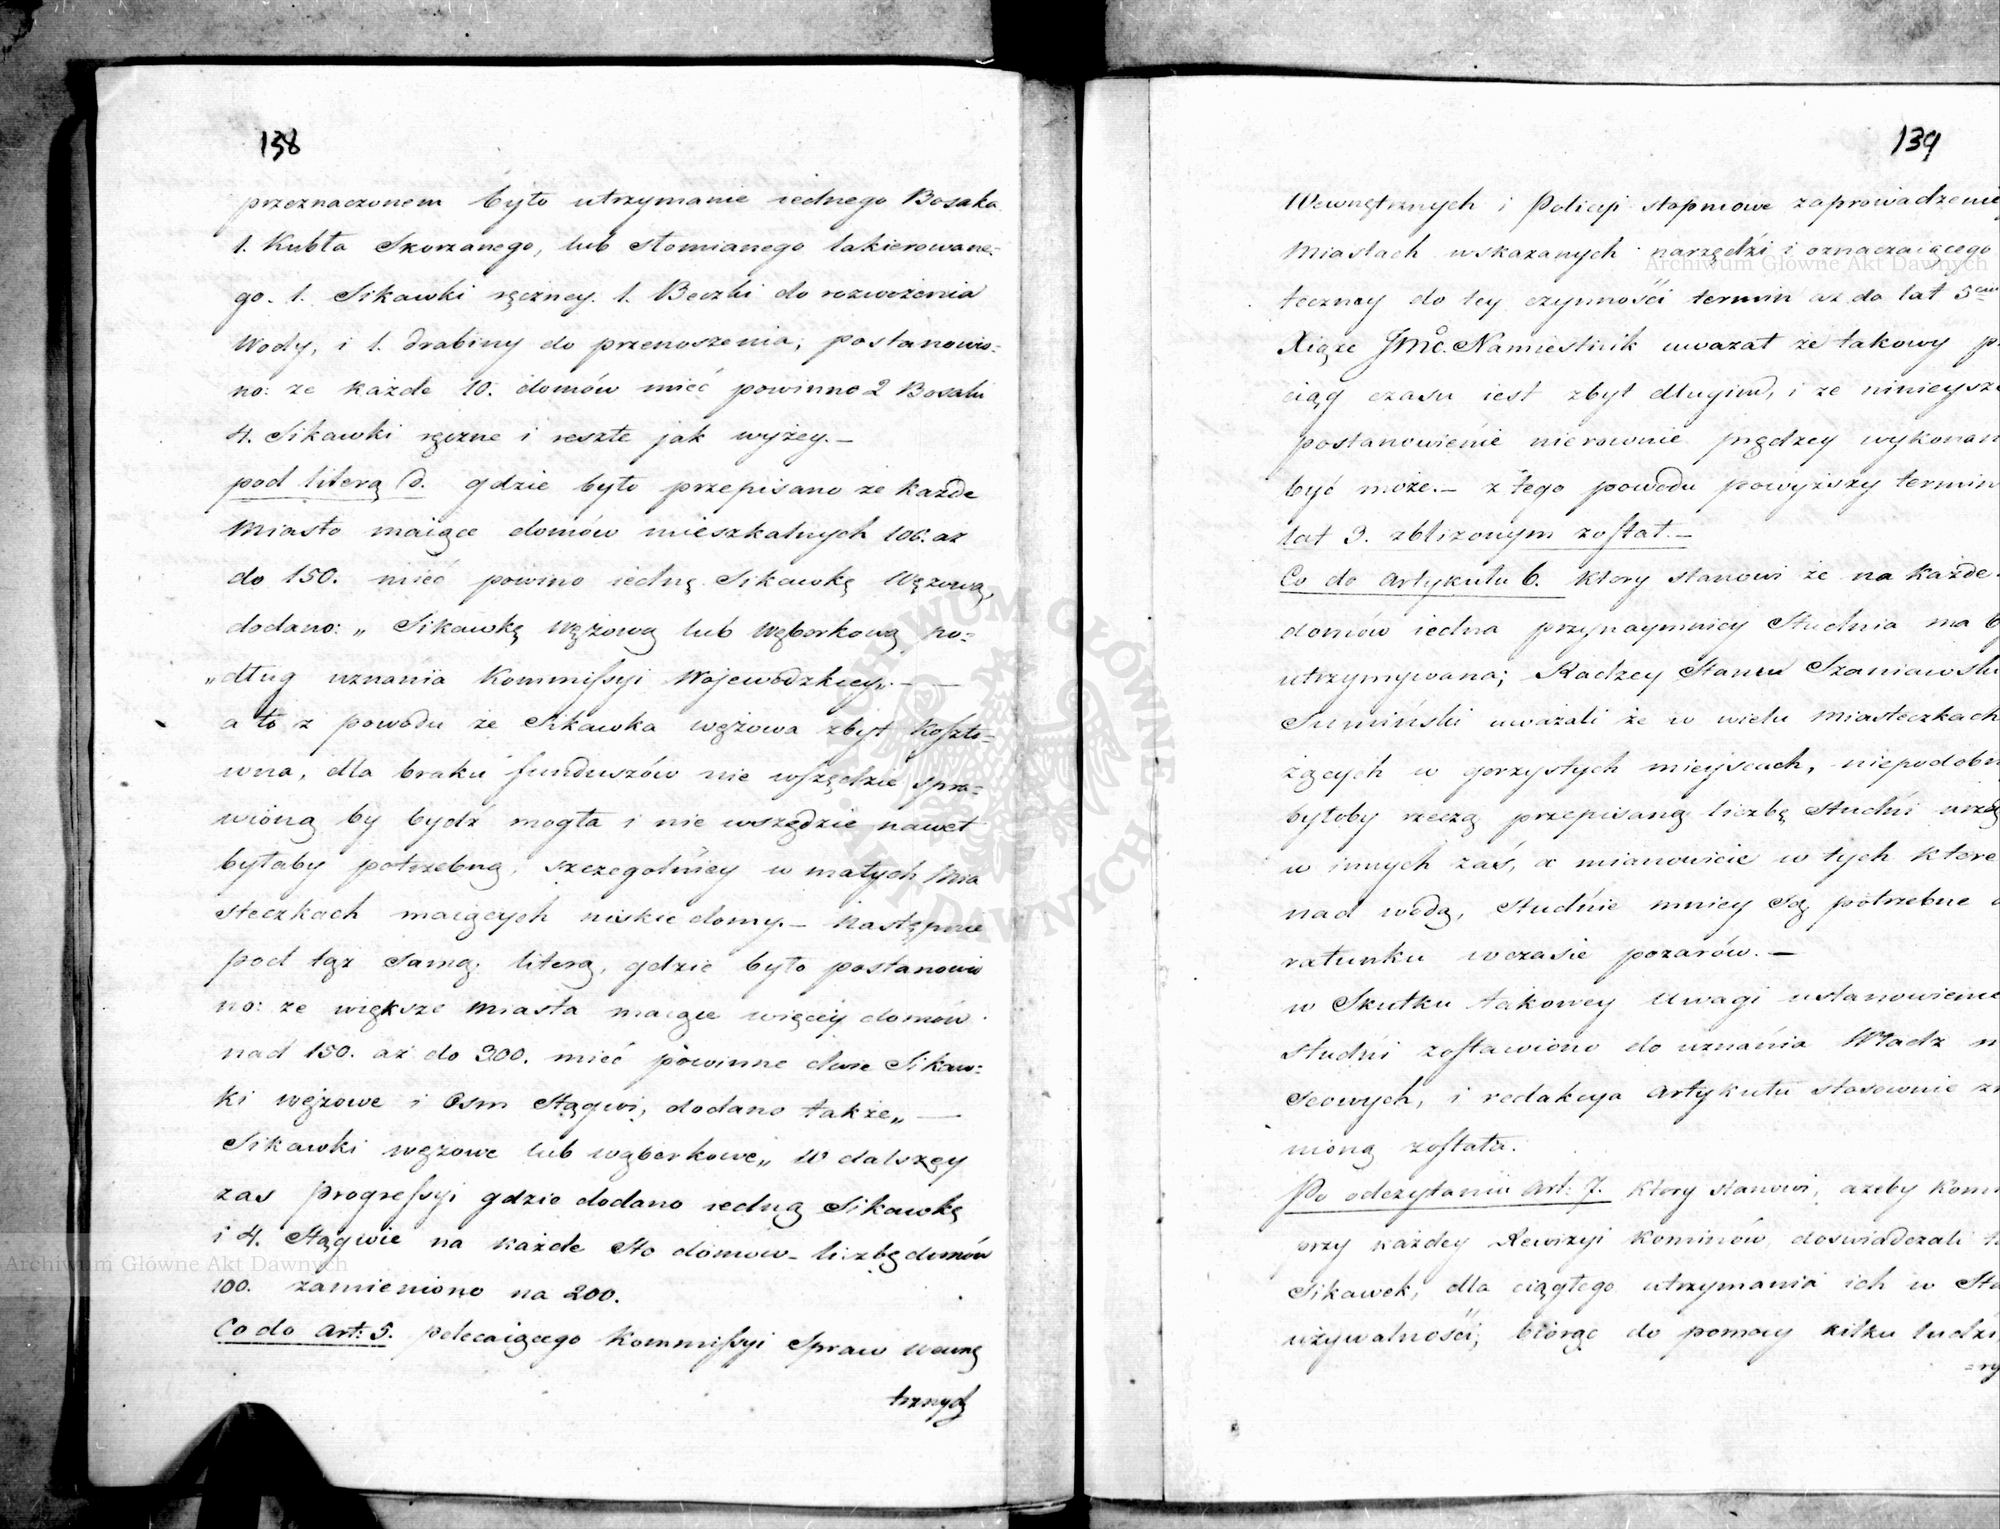 138
przeznaczonem było utrzymanie iednego Bosaka
1. Kubła Skorzanego, lub słomianego lakierowane-
go. 1. Sikawki ręczney. 1. Beczki do rozwożenia
Wody, i 1. drabiny do przenoszenia; postanowio-
no: ze każde 10. domów mieć powinno 2 Bosaki
4. Sikawki ręczne i reszte jak wyżey.—
pod literą D. gdzie było przepisano ze każde
Miasto maiące domów mieszkalnych 100. aż
do 150. mieć powino iedną Sikawkę Wężową,
dodano: „ Sikawkę wężową lub węborkową po-
„dług uznania Kommissyi Wojewodzkiey„.—
a to z powodu że Sikawka wężowa zbyt koszto-
wna, dla braku funduszów nie wszędzie spra-
wioną by bydź mogła i nie wszędzie nawet
byłaby potrzebną, szczegolniey w małych Mia
steczkach maiących niskie domy.— Następnie
pod tąż samą literą, gdzie było postanowio
no: ze większe Miasta maiące więcey domów
nad 150. aż do 300. mieć powinne dwie Sikaw-
ki wężowe i Osm Stągwi, dodano także„ —
Sikawki wężowe lub węborkowe„ W dalszey
zas progressyi gdzie dodano iedną Sikawkę
i 4. Stągwie na każde Sto domow- liczbę domów
100. zamieniono na 200.
Co do Art: 5. polecaiącego Kommissyi Spraw Wewnę
trznych
139
Wewnętrznych i Policyi stopniowe zaprowadzenie
Miastach wskazanych narzędzi i oznaczaiącego
teczney do tey czynności termin aż do lat 5ciu
Xiąże JMć. Namiestnik uważał że takowy
ciąg czasu iest zbyt długim, i ze ninieysze
postanowienie nierownie prędzey wykonan
być może.— z tego powodu powyższy termin
lat 3. zbliżonym został.—
Co do Artykułu 6. Ktory stanowi że na Każde
domów iedna przynaymniey Studnia ma
utrzymywana; Radzcy Stanu Szaniawski
Sumiński uważali że w wielu Miasteczkach
żących w gorzystych mieyscach, niepodobn
byłoby rzeczą przepisaną liczbę Studni urzą
w innych zaś, a mianowicie w tych które
nad wodą, Studnie mniey są potrzebne
ratunku w czasie pożarów.—
w Skutku takowey Uwagi ustanowienie
studni zostawiono do uznania Władz
scowych, i redakcya Artykułu stosownie
nioną została.
Po odczytaniu Art: 7. Ktory stanowi, ażeby Kom
przy każdey Rewizyi Kominów doświadczali
Sikawek, dla ciągłego utrzymania ich w
używalności, biorąc do pomocy kilku ludzi